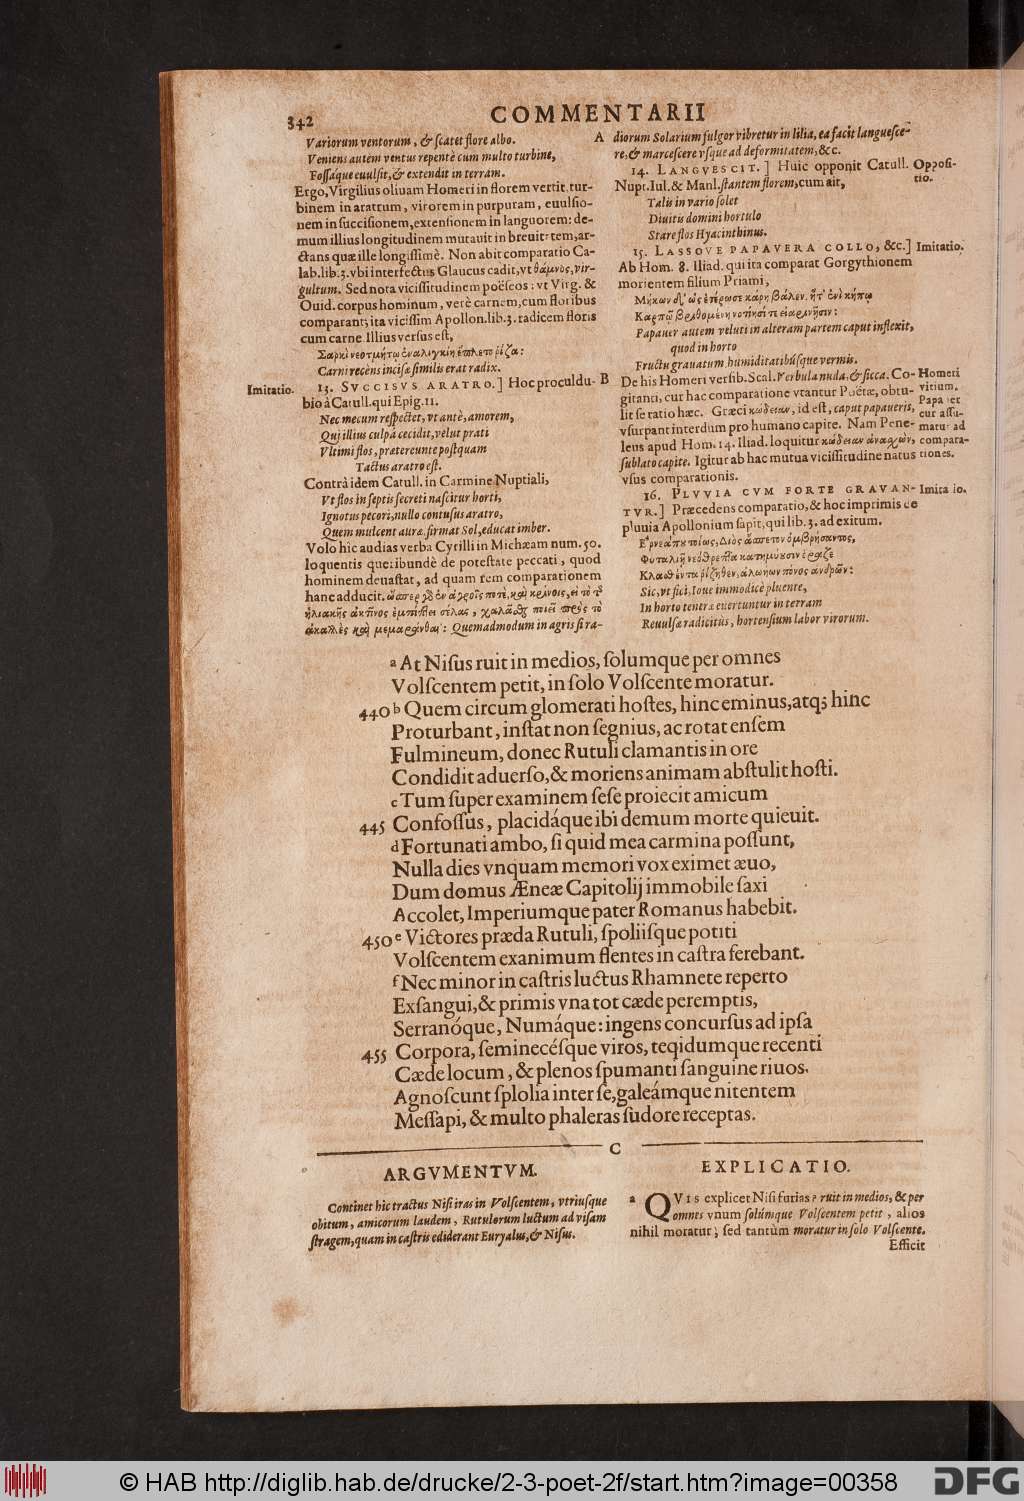 342
COMMENTARII
Variorum ventorum, & scatet flore albo.
Veniens autem ventus repentè cum multo turbine,
Fossaque euulsit, & extendit in terram.
Ergo, Virgilius oliuam Homeri in florem vertit, tur-
binem in aratrum, virorem in purpuram, euulsio-
nem in succisionem, extensionem in languorem: de-
mum illius longitudinem mutauit in breuitatem, ar-
ctans quæ ille longissimè. Non abit comparatio Ca-
lab. lib. 3. vbi interfectus Glaucus cadit, vt θάμνος, vir-
gultum. Sed nota vicissitudinem poëseos: vt Virg. &
Ouid. corpus hominum, verè carnem, cum floribus
comparant; ita vicissim Apollon. lib. 3. radicem floris
cum carne. Illius versus est,
Σαρκὶ νεοτμήτῳ ἐναλιγκίη ἔπλετο ῥίζα:
Carni recens incisæ similis erat radix.
Imitatio.
13. SVCCISVS ARATRO.] Hoc proculdu-
bio à Catull. qui Epig. 11.
Nec meum respectet, vt antè, amorem,
Qui illius culpâ cecidit, velut prati
Vltimi flos, prætereunte postquam
Tactus aratro est.
Contrà idem Catull. in Carmine Nuptiali,
Vt flos in septis secreti nascitur horti,
Ignotus pecori, nullo contusus aratro,
Quem mulcent auræ, firmat Sol, educat imber.
Volo hic audias verba Cyrilli in Michæam num. 50.
loquentis queribundè de potestate peccati, quod
hominem deuastat, ad quam rem comparationem
hanc adducit. ὥσπερ γὸ ἐν ἀγροῖς ποτὲ, καὶ κρίνοις, εἰ τὸ τ͂
ἡλιακῆς ἀκτῖνος ἐμπίπτει σέλας, χαλᾶσθ ποιεῖ πρὸς τὸ
ἀκαλλὲς καὶ μεμαράνθαι: Quemadmodum in agris si ra-
A
B
diorum Solarium fulgor vibretur in lilia, ea facit languesce-
re, & marcescere vsque ad deformitatem, &c.
14. LANGVESCIT.] Huic opponit Catull.
Opposi-
tio.
Nupt. Iul. & Manl. stantem florem, cum ait,
Talis in vario solet
Diuitis domini hortulo
Stare flos Hyacinthinus.
15. LASSOVE PAPAVERA COLLO, &c.]
Imitatio.
Ab Hom. 8. Iliad. qui ita comparat Gorgythionem
morientem filium Priami,
Μήκων δ', ὡς ἑτέρωσε κάρη βάλεν, ἥτ' ἐνὶ κήπῳ
Καρπῷ βριθομένη νοτίῃσί τε εἰαρινῇσιν:
Papauer autem veluti in alteram partem caput inflexit,
quod in horto
Fructu grauatum, humiditatibúsque vernis.
De his Homeri versib. Scal. Verbula nuda, & sicca. Co-
gitanti, cur hac comparatione vtantur Poëtæ, obtu-
lit se ratio hæc. Græci κώδειαν, id est, caput papaueris,
vsurpant interdum pro humano capite. Nam Pene-
leus apud Hom. 14. Iliad. loquitur κώδειαν ἀνασχὼν,
sublato capite. Igitur ab hac mutua vicissitudine natus
vsus comparationis.
Homeri
vitium.
Papauer
cur assu-
matur ad
compara-
tiones.
16. PLVVIA CVM FORTE GRAVAN-
Imitatio.
TVR.] Præcedens comparatio, & hoc imprimis de
pluuia Apollonium sapit, qui lib. 3. ad exitum.
Φυταλιῇ νεόθρεπτα κατημύουσιν ἔραζε
Κλασθέντα ῥίζηθεν, ἀλωήων πόνος ἀνδρῶν:
Sic, vt fici, Ioue immodicè pluente,
In horto tenera euertuntur in terram
Reuulsa radicitus, hortensium labor virorum.
a At Nisus ruit in medios, solumque per omnes
Volscentem petit, in solo Volscente moratur.
440 b Quem circum glomerati hostes, hinc eminus, atq; hinc
Proturbant, instat non segnius, ac rotat ensem
Fulmineum, donec Rutuli clamantis in ore
Condidit aduerso, & moriens animam abstulit hosti.
c Tum super examinem sese proiecit amicum
445 Confossus, placidáque ibi demum morte quieuit.
d Fortunati ambo, si quid mea carmina possunt,
Nulla dies vnquam memori vox eximet æuo,
Dum domus Æneæ Capitolij immobile saxi
Accolet, Imperiumque pater Romanus habebit.
450 e Victores præda Rutuli, spoliisque potiti
Volscentem exanimum flentes in castra ferebant.
f Nec minor in castris luctus Rhamnete reperto
Exsangui, & primis vna tot cæde peremptis,
Serranóque, Numáque: ingens concursus ad ipsa
455 Corpora, seminecésque viros, teqidumque recenti
Cæde locum, & plenos spumanti sanguine riuos.
Agnoscunt splolia inter se, galeámque nitentem
Messapi, & multo phaleras sudore receptas.
C
ARGVMENTVM.
Continet hic tractus Nisi iras in Volscentem, vtriusque
obitum, amicorum laudem, Rutulorum luctum ad visam
stragem, quam in castris ediderant Euryalus, & Nisus.
EXPLICATIO.
a QVIS explicet Nisi furias? ruit in medios, & per
omnes vnum solúmque Volscentem petit, alios
nihil moratur; sed tantùm moratur in solo Volscente.
Efficit
© HAB http://diglib.hab.de/drucke/2-3-poet-2f/start.htm?image=00358
DFG